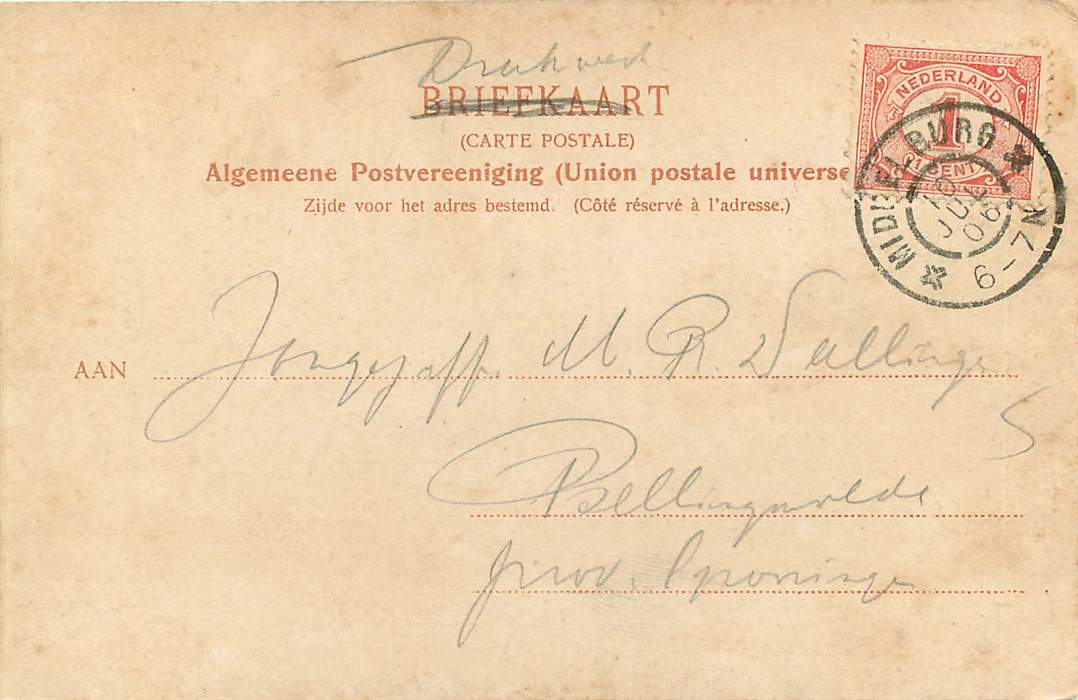 Drukwerk
BRIEFKAART
(CARTE POSTALE)
Algemeene Postvereeniging (Union postale universe
Zijde voor het adres bestemd. (Côté réservé à l'adresse.)
NEDERLAND
1
(1 CENT)
MIDDELBURG
JUL
06
6-7N
AAN
M. R.
Bellingwolde
prov. Groningen